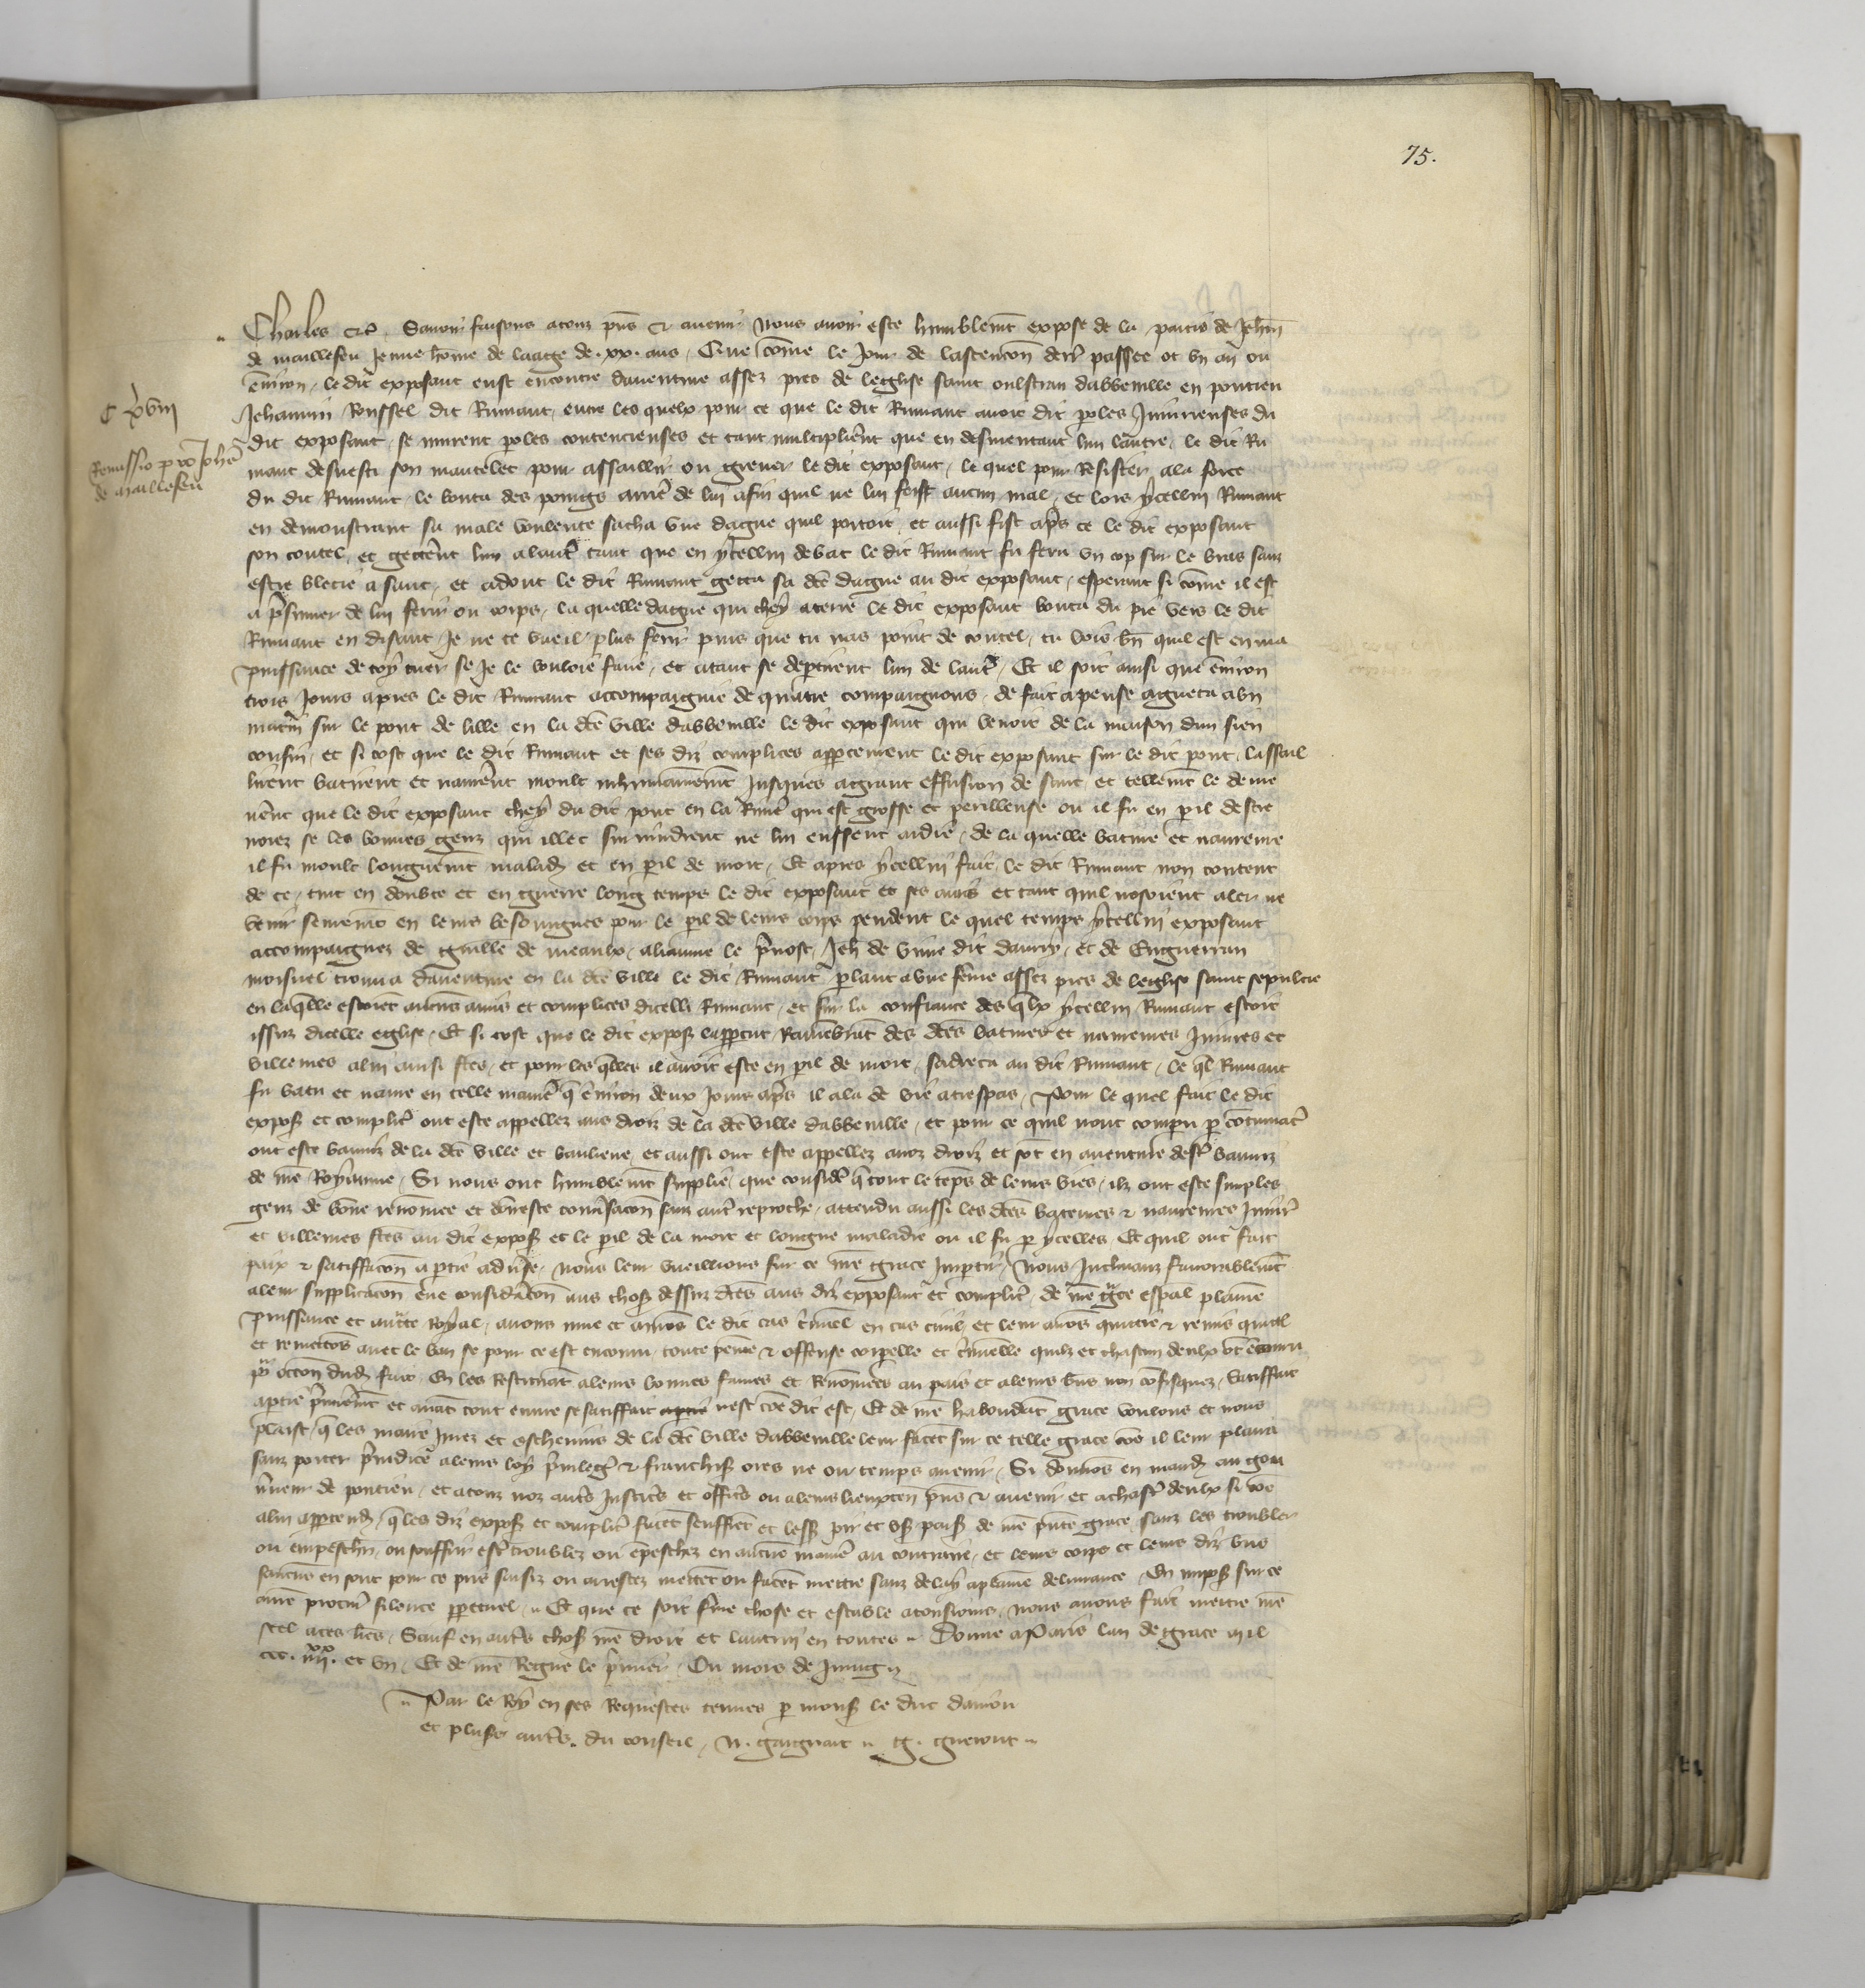 75.
Charles etc. Savoir faisons a touz p̄ns et avenir nous avoir este humblem̄t expose de la partie de Jeh̄n
de maillefeu jeune hōme de laage de .xx. ans, Que cōme le jour de lascencōn derr̄ passee ot un an ou
ēnviron, le dit exposant eust encontre daventure assez pres de leglise saint oulfran dabbeville en pontieu
C xviii
Jehannin Roussel dit Rumant, entre les quelx pour ce que le dit Rumant avoit dit p̄oles Injurieuses du
dit exposant, se murent p̄oles contencieuses et tant multiplier̄nt que en desmentant lun lautre, le dit Ru
Remissio pro Joh̄e
de maillefeu
mant desvesti son mantelet pour assaillir ou grever le dit exposant, le quel pour Resister ala force
du dit Rumant, le bouta des poings arrier̄ de lui afin quil ne lui feist aucun mal, et lors ycellui Rumant
en demonstrant sa male voulente sacha une dague quil portoit, et aussi fist ap̄s ce le dit exposant
son coutel, et getter̄nt lun alautr̄ tant que en ycellui debat le dit Rumant fu feru un cop sur le bras sanz
estre blecie a sanc, et adont le dit Rumant getta sa dc̄e dague au dit exposant, esperant si cōme il est
a p̄sumer de lui ferir ou corps, la quelle dague qui chey aterre le dit exposant bouta du pie vers le dit
Rumant en disant, Je ne te vueil plus ferir puis que tu nas point de coutel, tu vois bn̄ quil est en ma
puissance de toy tuer se Je le vouloie faire, et atant se departirent lun de lautr̄, Et il soit ainsi que ēnviron
trois jours apres le dit Rumant accompaignie de quatre compaignons, de fait apense agueta a un
matin sur le pont de lille en la dc̄e ville dabbeville le dit exposant qui venoit de la maison dun sien
cousin, et si tost que le dit Rumant et ses diz complices app̄ceurent le dit exposant sur le dit pont, lassail
lirent batirent et navrer̄nt moult inhumainem̄t jusques a grant effusion de sanc et tellem̄t le deme
ner̄nt que le dit exposant chey du dit pont en la Rivier̄ qui est grosse et perilleuse ou il fu en p̄il destre
noiez se les bonnes genz qui illec survindrent ne lui eussent aidie, de la quelle bature et navreure
il fu moult longuem̄t malade et en p̄il de mort, Et apres ycellui fait, le dit Rumant non content
de ce, tint en doubte et en guerre long temps le dit exposant et ses amis et tant quil nosoient aler ne
venir seurem̄t en leurs besoingnes pour le p̄il de leurs corps pendent le quel temps ycellui exposant
accompaignez de Guille de meaulx, aliaume le p̄vost, Jeh̄ de vime dit daury, et de Enguerran
moisnel trouva daventure en la dc̄e ville le dit Rumant p̄lant a une fēme assez pres de leglise saint sepulcre
en laq̄lle estoient aucuns amis et complices dicelli Rumant, et sur la confiance des q̄lx ycellui Rumant estoit
issuz dicelle eglise, Et si tost que le dit expos̄ lapp̄cut Ramēbrāt des dc̄es batures et navreures Injures et
villenies alui ainsi fc̄es, et pour les q̄lles il avoit este en p̄il de mort, sadreca au dit Rumant, le q̄l Rumant
fu batu et navre en telle manier̄ q̄ ēnviron deux jours ap̄s il ala de vie atrespas, Pour le quel fait le dit
expos̄ et complic̄ ont este appellez aus droiz de la dc̄e ville dabbeville, et pour ce quil nont compu p̄ cōtumac̄
ont este banniz de la dc̄e ville et banlieue, et aussi ont este appellez a noz droiz et sōt en aventure destr̄ banniz
de nr̄e Royaume, Si nous ont humblem̄t supplie, que consider̄ q̄ tout le tēps de leurs vies, ilz ont este simples
genz de bōne renōmee et dōneste conv̄sacōn sanz autr̄ reproche, attendu aussi les dc̄es bateures et navreures Injur̄
et villenies fc̄es au dit expos̄ et le p̄il de la mort et longue maladie ou il fu p̄ ycelles, Et quil ont fait
paix et satiffacōn a p̄tie adv̄se, nous leur vueillions sur ce nr̄e grace Imp̄tir, Nous Inclinanz favorablem̄t
aleur supplicacōn eue considr̄acōn aus chos̄ dessuz dc̄es aus diz exposant et complic̄ de nr̄e grc̄e esp̄al plaine
puissance et auc̄te Royal, avons mue et muōs le dit cas c̄minel en cas civil, et leur avōs quictie et remis quictōs
et remettōs avec le ban se pour ce est encouru, toute peine et offense corp̄elle et c̄minelle quilz et chascun deulx ōt ēcouru
po̅ occōn dud̄ fait, En les Restituāt aleurs bonnes fames et Renōmees au pais et aleurs b̄ns non cōfisquez, Satiffait
a p̄tie p̄mierem̄t et avāt tout euvre se satiffait nest cōe dit est, Et de nr̄e habondāt grace voulons et nous
plaist, q̄ les maire Jurez et eschevins de la dc̄e ville dabbeville leur facēt sur ce telle grace cōe il leur plaira
sanz porter p̄judice aleurs loy p̄vileḡ et franchis̄ ores ne ou temps avenir, Si donnōs en mand̄ au gou
v̄neur de pontieu, et a touz noz autr̄s Justic̄s et offic̄s ou aleurs lieuxten̄ p̄ns et avenir et achasc̄ deulx si cōe
alui app̄tendr̄, q̄ les diz expos̄ et complic̄ facēt seuffrēt et less̄ joir et us̄ pais̄ de nr̄e p̄nte grace, sanz les troubler
ou empeschr̄, ou souffrir estr̄ troublez ou ēpeschez en aucune manier̄ au contraire, et leurs corps et leurs diz b̄ns
saucuns en sont pour ce pris saisiz ou arrestez mettēt ou facēt mettre sanz delay a plaine delivrance, En impos̄ sur ce
a nr̄e procur̄ silence p̄petuel, Et que ce soit ferme chose et estable a tousjours, Nous avons fait mettre nr̄e
scel a ces lr̄es, Sauf en autr̄s chos̄ nr̄e droit et lautrui en toutes, Donne a Paris lan de grace mil
ccc. iiiixx. et un, Et de nr̄e Regne le p̄mier, Ou mois de Juing
Par le Roy en ses Requestes tenues p̄ mons̄ le duc danjou
et plus̄rs autr̄s du conseil, N. gaignart G. gueront